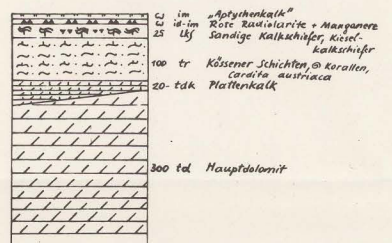 ω im „Aptychenkalk"
ω id-im Rote Radiolarite + Manganerz
25 lkf Sandige Kalkschiefer, Kiesel-
kalkschiefer
100 tr Kössener Schichten, Korallen,
Cardita austriaca
20- tdk Plattenkalk
300 td Hauptdolomit